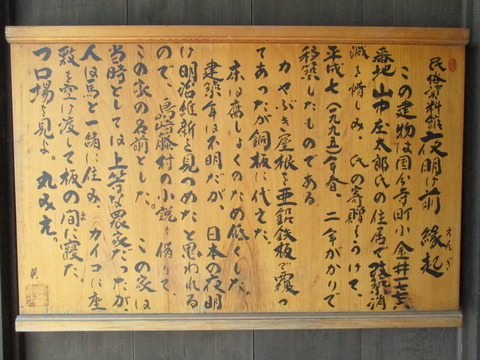 民俗資料館 夜明け前 縁起
えんぎ
この建物は国分寺町小金井一七七
番地 山中庄太郎氏の住居で改築消
滅を惜しみ、氏の寄贈をうけて、
平成七(一九九五)年春 二年がかりで
移築したものである
カヤぶき屋根を亜鉛鉄板で覆っ
てあったが銅板に代えた。
床は腐しょくのため低くした。
建築年は不明だが、日本の夜明
け明治維新を見つめたと思われる
ので、島崎藤村の小説を借りて、
この家の名前とした。 この家は
当時としては上等な農家だったが、
人は馬と一緒に住み、カイコに座
敷を空け渡して板の間に寝た。
つ口場を見よ。 丸みえ。